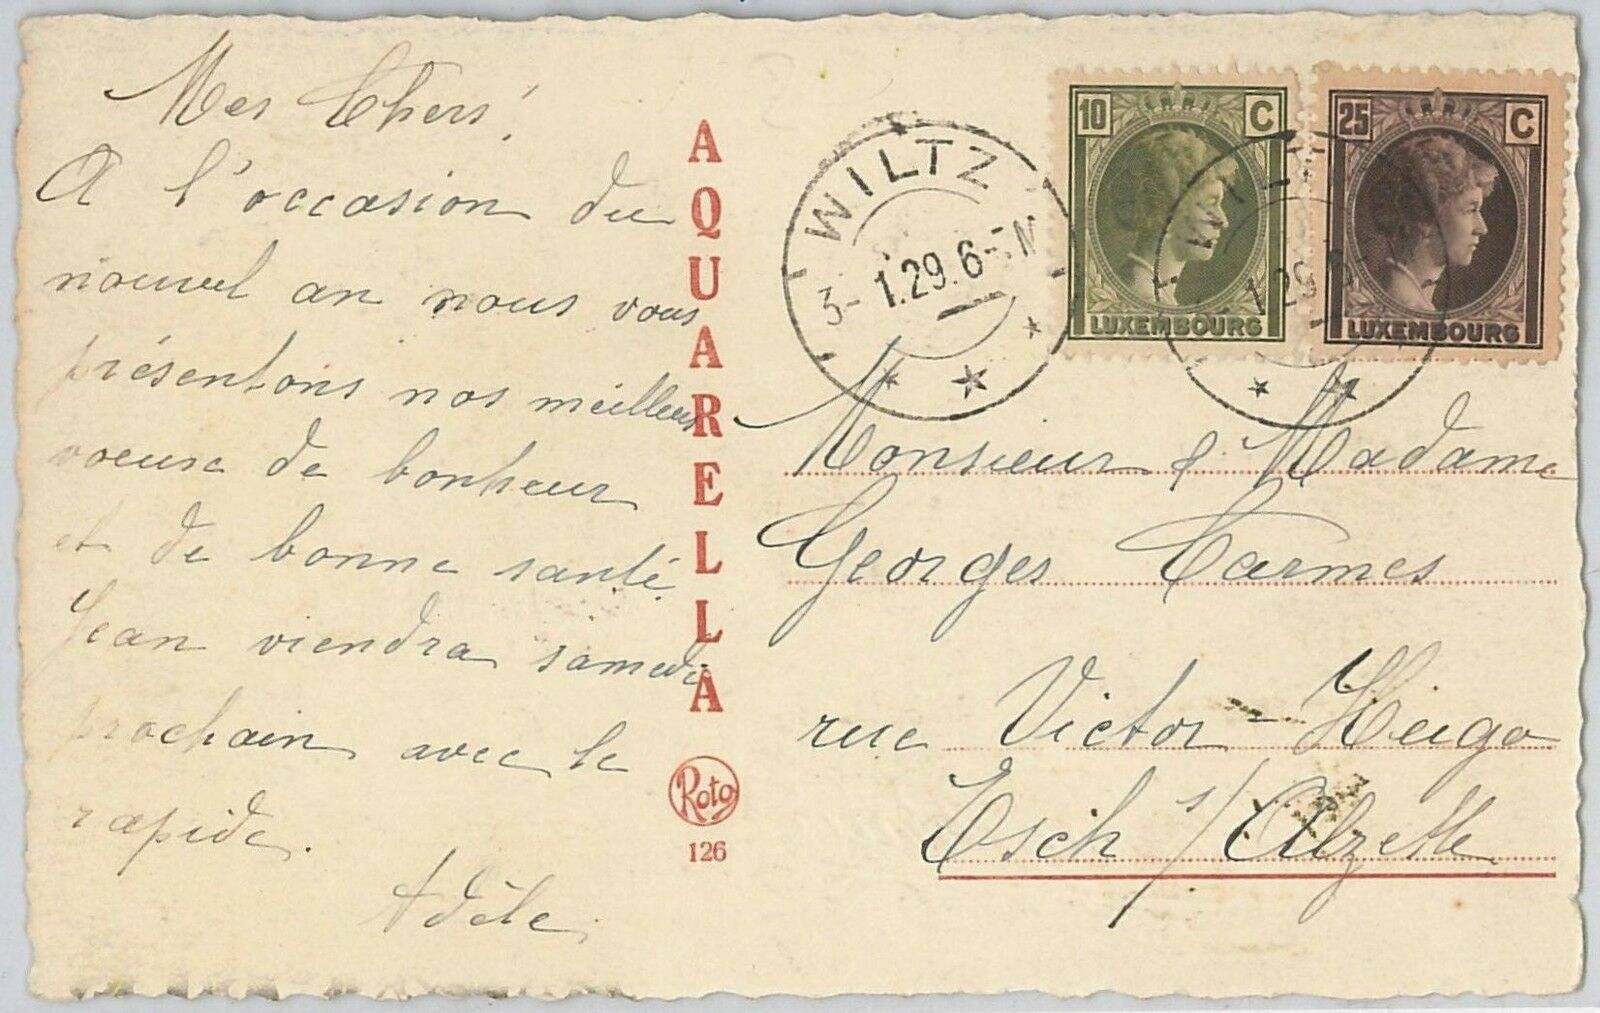 Mes Chers!
A l'occasion du
nouvel an nous vous
présentons nos meilleurs
voeux de bonheur
et de bonne santé.
Jean viendra samedi
prochain avec le
rapide.
Adèle
AQUARELLA
Roto
126
WILTZ
3-1.29.6-7N
10 C
LUXEMBOURG
25 C
LUXEMBOURG
WILTZ
1.29.6-
Monsieur & Madame
Georges Carmes
rue Victor-Hugo
Esch s/Alzette